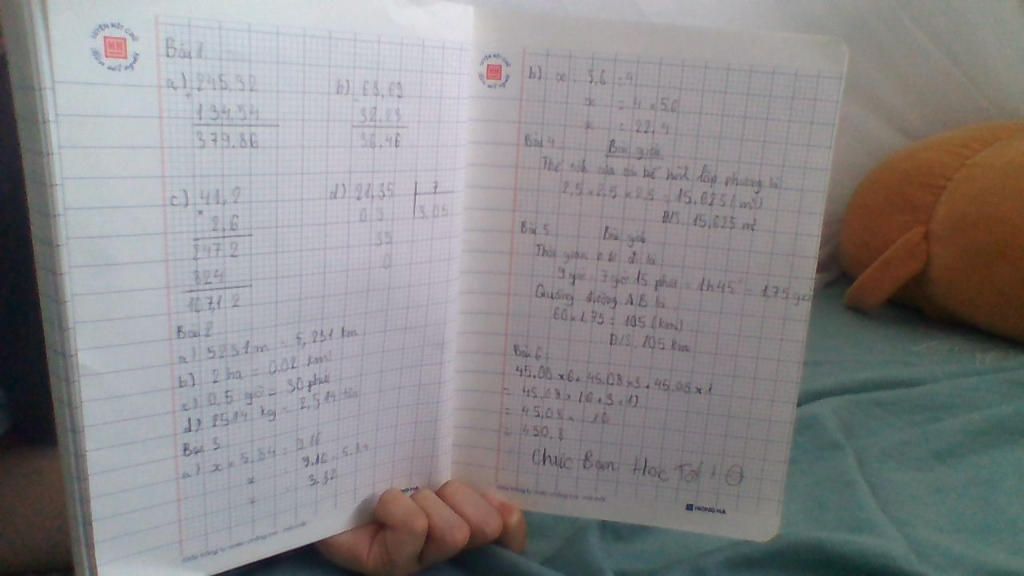 Bài 1
a) 245,32
+
134,54
379,86
b) 68,69
32,23
36,46
c) 41,2
×
2,6
2472
824
107,1 2
d) 21,35 7
0 3 3,05
35
0
Bài 2
a) 5231m = 5,231 km
b) 2 ha = 0.02 km²
c) 0,5 giờ = 30 phút
d) 2514 kg = 2,514 tấn
Bài 3
a) x + 5,84 = 9,16
x = 9,16 - 5,84
x = 3,32
b) x : 5,6 = 4
x = 4 × 5,6
x = 22,4
Bài 4 Bài giải
Thể tích của hình lập phương là
2,5 × 2,5 × 2,5 = 15,625 (m³)
Đ/S: 15,625 m³
Bài 5 Bài giải
Thời gian ô tô đi là
9 giờ - 7 giờ 15 phút = 1h45' = 1,75 giờ
Quãng đường AB là
60 × 1,75 = 105 (km)
Đ/S: 105 km
Bài 6
45,08 × 6 + 45,08 × 3 + 45,08 × 1
= 45,08 × (6 + 3 + 1)
= 45,08 × 10
= 450,8
Chúc Bạn Học Tốt !
HONG HA